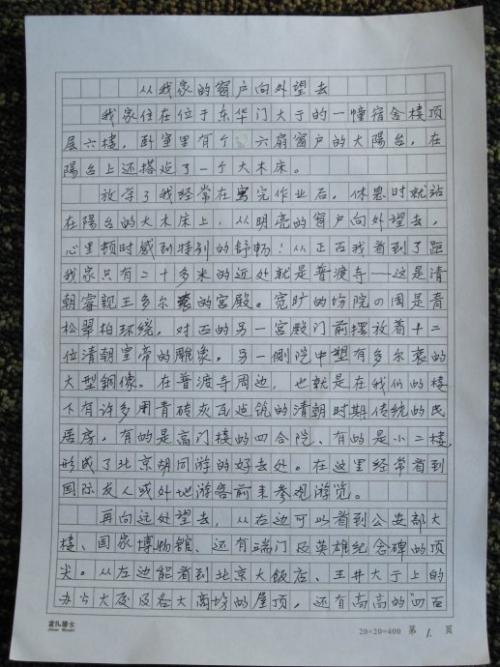 从我家的窗户向外望去
我家住在位于东华门大于的一幢宿舍楼顶
层六楼，卧室里有个六扇窗户的大陽台，在
陽台上还搭造了一个大木床。
放学了我经常在写完作业后，休息时就站
在陽台的大木床上，从明亮的窗户向外望去，
心里顿时感到特别的舒畅！从正面我看到了距
我家只有二十多米的近处就是普渡寺——这是清
朝睿親王多尔衮的宫殿。宽旷的埸院四周是青
松翠柏环绕，对面的另一宫殿门前摆放着十二
位清朝皇帝的雕象。另一侧院中塑有多尔衮的
大型铜像。在普渡寺周边，也就是在我们的楼
下有许多用青砖灰瓦造筑的清朝时期传统的民
居房，有的是高门楼的四合院、有的是小二楼，
形成了北京胡同游的好去处。在这里经常看到
国际友人或外地游客前来参观游览。
再向远处望去，从右边可以看到公安部大
楼、国家博物館、还有端门及英雄纪念碑的顶
尖。从左边能看到北京大饭店、王井大于上的
办公大厦及各大商埸的屋顶，还有高高的"四百
20×20=400 第 1. 页